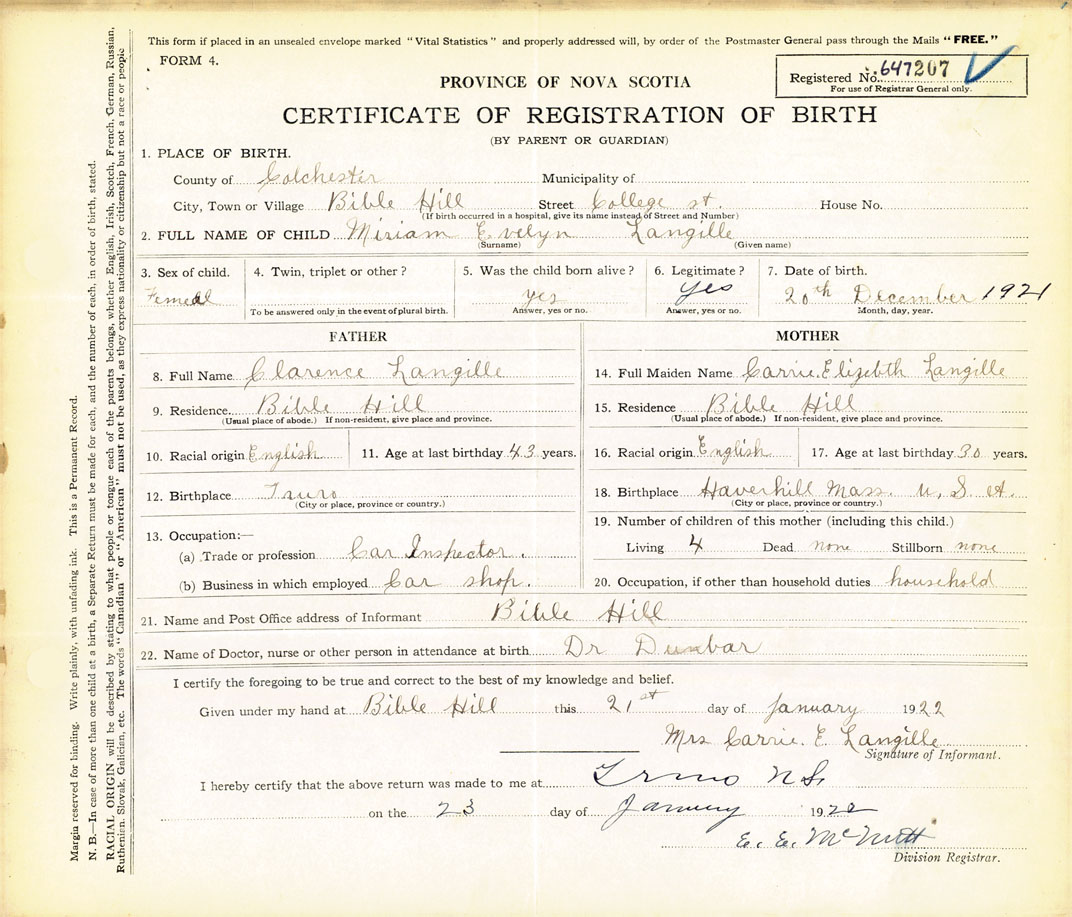 This form if placed in an unsealed envelope marked "Vital Statistics" and properly addressed will, by order of the Postmaster General pass through the Mails "FREE."
FORM 4.
PROVINCE OF NOVA SCOTIA
Registered No. 647207
For use of Registrar General only.
CERTIFICATE OF REGISTRATION OF BIRTH
(BY PARENT OR GUARDIAN)
1. PLACE OF BIRTH.
County of Colchester Municipality of
City, Town or Village Bible Hill Street College st. House No.
(If birth occurred in a hospital, give its name instead of Street and Number)
2. FULL NAME OF CHILD Miriam Evelyn Langille
(Surname) (Given name)
3. Sex of child. 4. Twin, triplet or other? 5. Was the child born alive? 6. Legitimate? 7. Date of birth.
Femeal yes yes 20th December 1921
To be answered only in the event of plural birth. Answer, yes or no. Answer, yes or no. Month, day, year.
FATHER
8. Full Name Clarence Langille
9. Residence Bible Hill
(Usual place of abode.) If non-resident, give place and province.
10. Racial origin English 11. Age at last birthday 43 years.
12. Birthplace Truro
(City or place, province or country.)
13. Occupation:—
(a) Trade or profession Car Inspector.
(b) Business in which employed Car shop.
MOTHER
14. Full Maiden Name Carrie. Elizebth Langille
15. Residence Bible Hill
(Usual place of abode.) If non-resident, give place and province.
16. Racial origin English 17. Age at last birthday 30 years.
18. Birthplace Haverhill Mass. U. S. A.
(City or place, province or country.)
19. Number of children of this mother (including this child.)
Living 4 Dead none Stillborn none
20. Occupation, if other than household duties household
21. Name and Post Office address of Informant Bible Hill
22. Name of Doctor, nurse or other person in attendance at birth Dr Dunbar
I certify the foregoing to be true and correct to the best of my knowledge and belief.
Given under my hand at Bible Hill this 21st day of January 1922
Mrs Carrie. E. Langille
Signature of Informant.
I hereby certify that the above return was made to me at Truro N.S.
on the 23 day of January 1922
E. E. McNutt
Division Registrar.
Margin reserved for binding. Write plainly, with unfading ink. This is a Permanent Record.
N. B.—In case of more than one child at a birth, a Separate Return must be made for each, and the number of each, in order of birth, stated.
RACIAL ORIGIN will be described by stating to what people or tongue each of the parents belongs, whether English, Irish, Scotch, French, German, Russian,
Ruthenian, Slovak, Galician, etc. The words "Canadian" or "American" must not be used, as they express nationality or citizenship but not a race or people